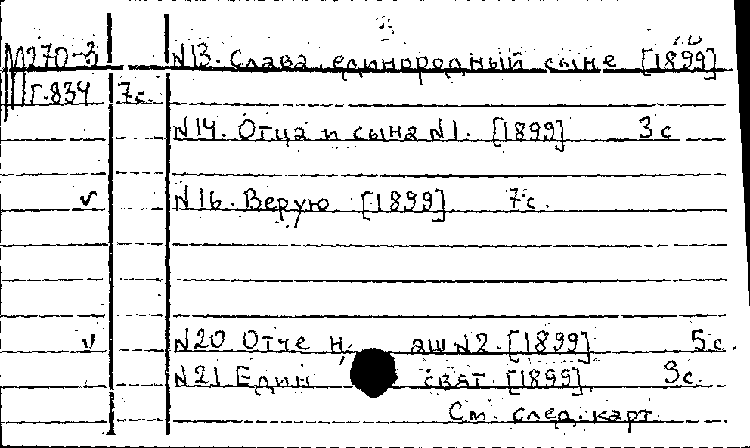 3
М270-3 N13. Слава единородный сыне [1899]
Г.834 7с.
N14. Отца и сына N1. [1899] 3с
v N16. Верую [1899] 7с.
v N20 Отче наш N2. [1899] 5с.
N21 Един свят [1899] 3с.
См. след. карт.